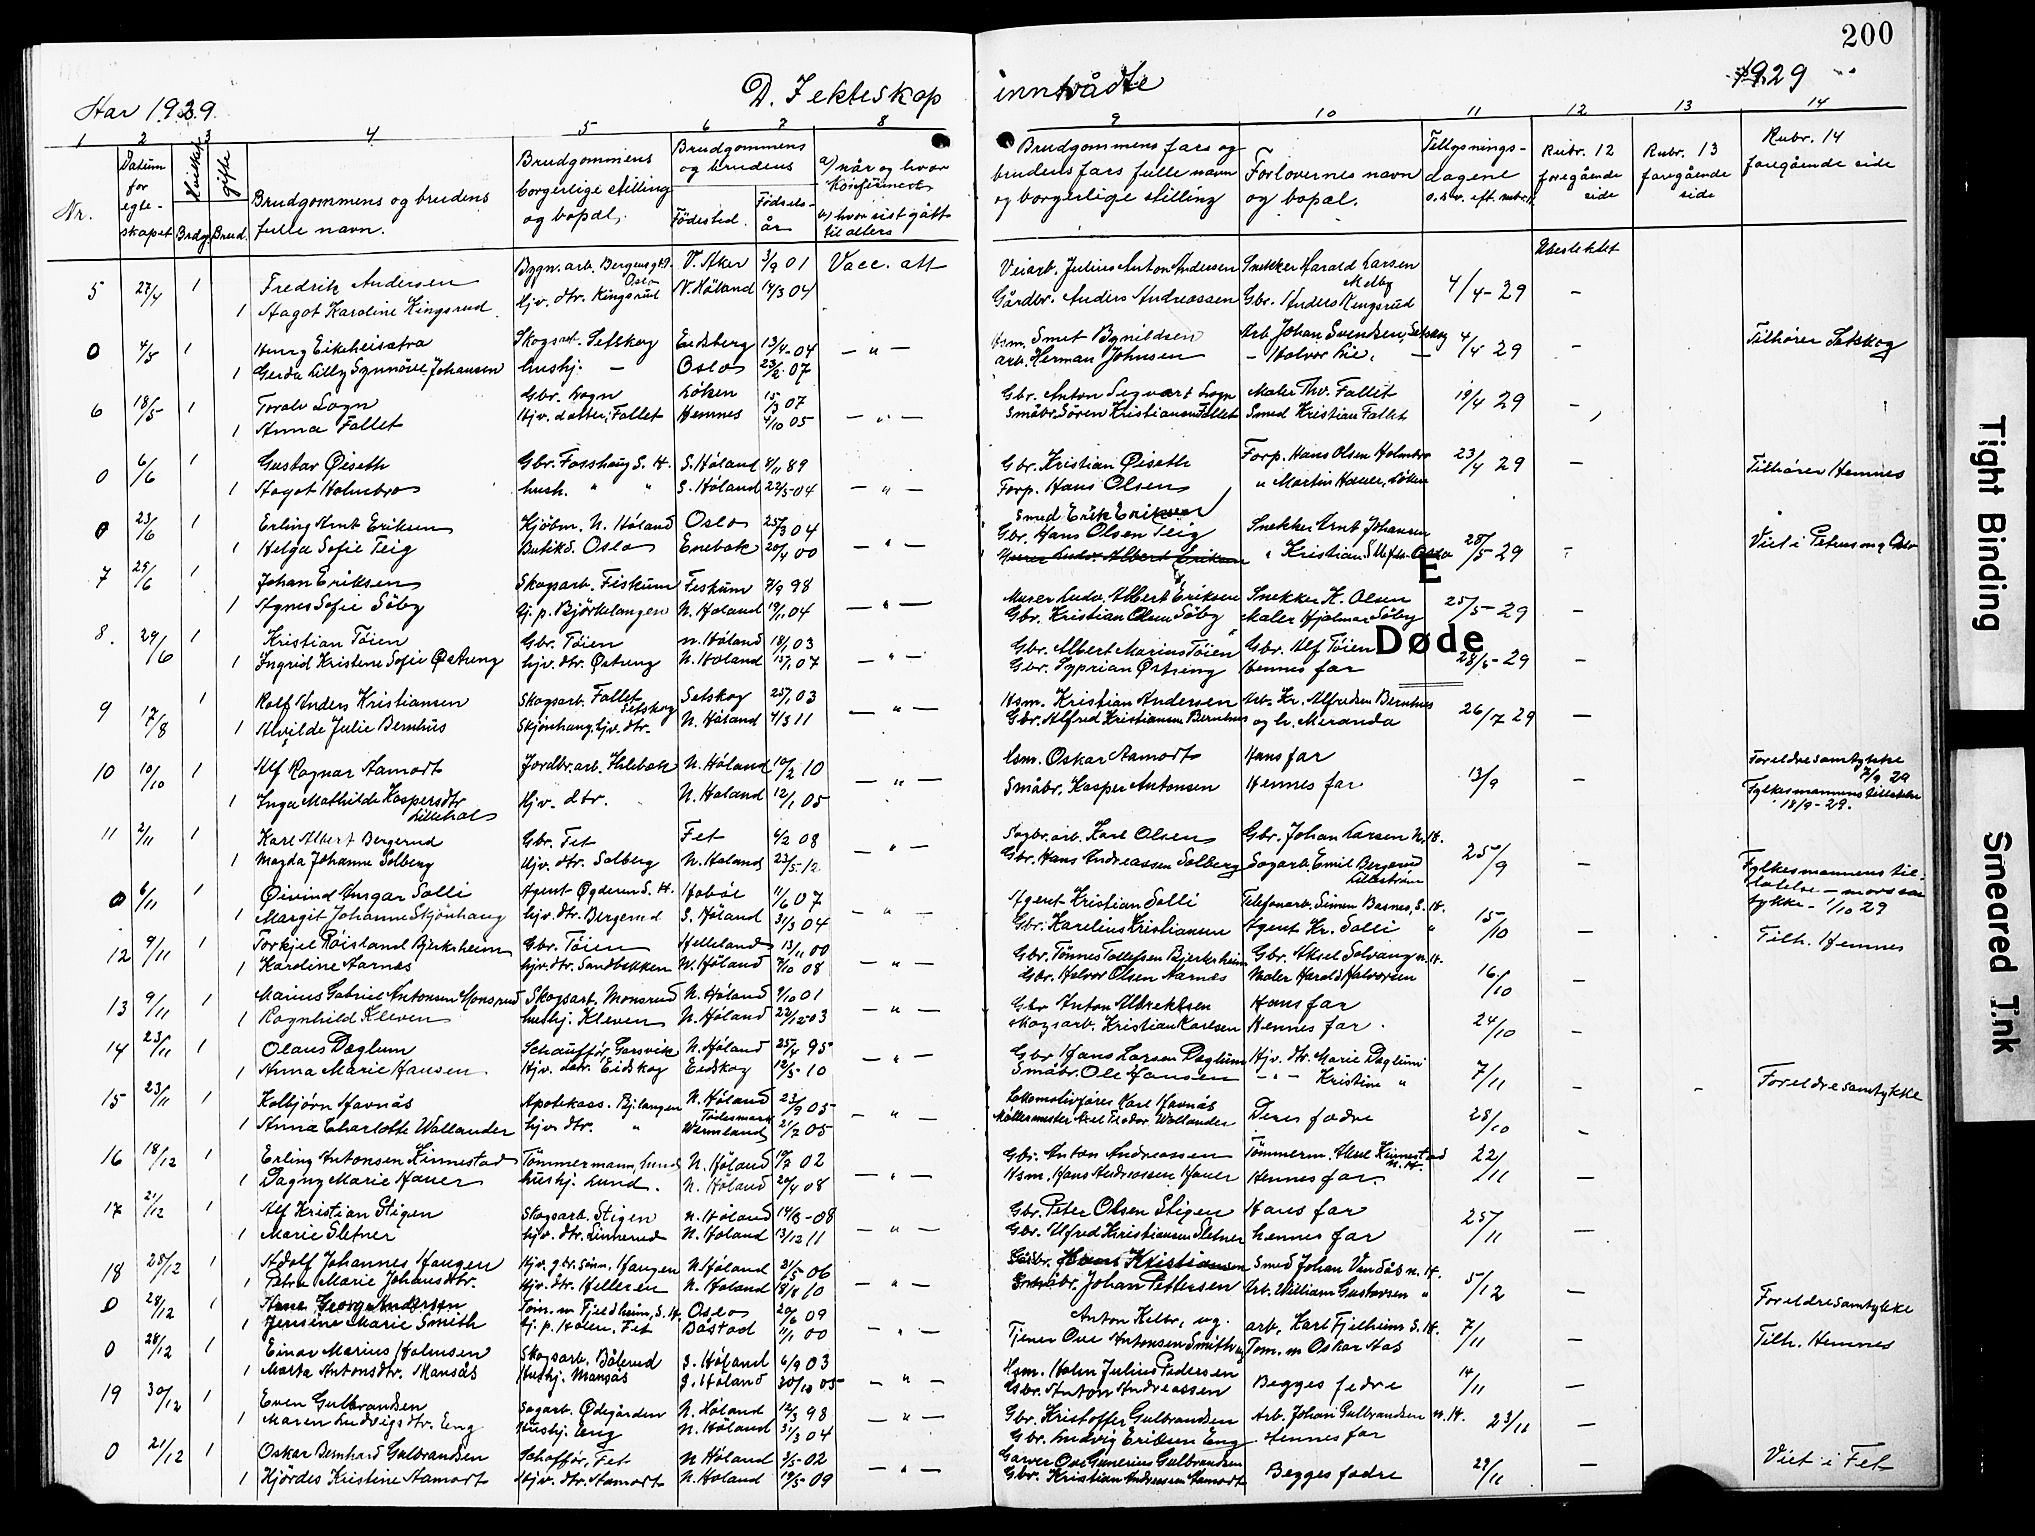 200
Har 1929.
D. Jekteskap inntrådte
1929
1 2 3 4 5 6 7 8 9 10 11 12 13 14
Nr.
Datum for egte-skapet
gifte
Brdg. Brud.
Brudgommens og brudens fulle navn.
Brudgommens borgerlige stilling og bopæl.
Brudgommens og brudens
Fødested. Fødsels-år
a) når og hvor konfirmert
b) hvor sist gått til alters
Brudgommens fars og brudens fars fulle navn og borgerlige stilling
Forlovernes navn og bopæl.
Tillysnings-dagene
Rubr. 12 foregående side
Rubr. 13 foregående side
Rubr. 14 foregående side
5 27/4 1 Fredrik Andersen Bygn. arb. Bergensgt. Oslo V. Aker 3/9 01 Vacc. att Veiarb. Julius Anton Andersen Snekker Harald Larsen Melby 4/4-29 Ubeslektet
1 Aagot Karoline Kingsrud Hjv. dtr. Kingsrud N. Høland 14/3 04 Gårdbr. Anders Andreassen Gbr. Anders Kingsrud –
0 4/5 1 Skogsarb. Setskog Eidsberg 13/4-04 — " — Arb. Johan Svendsen, Setskog 4/4 29 – Tilhører Setskog
1 Gerda Lilly Synnøve Johansen hushj. — Oslo 23/2-07 arb. Herman Johnsen – Halvor Lie, —
6 18/5 1 Toralv Sogn Gbr. Sogn Løken 15/3 07 — " — Gbr. Anton Segvart Sogn Maler Thv. Fallet 19/4 29 –
1 Anna Fallet Hjv. datter, Fallet Hemnes 4/10 05 Småbr. Søren Kristiansen Fallet Smed Kristian Fallet
0 6/6 1 Gustav Øiseth Gbr. Fosshaug S. H. S. Høland 4/11 89 — " — Gbr. Kristian Øiseth Forp. Hans Olsen Holmbro 23/4 29 – Tilhører Hemnes
1 Aagot Holmbro hush. " " S. Høland 22/5-04 Forp. Hans Olsen " Martin Hauer, Løken
0 23/6 1 Erling Arnt Eriksen Kjøbm. N. Høland Oslo 25/3 04 — " — Smed Erik Eriksen Snekker Arnt Johansen 28/5 29 Viet i Petrus mg Oslo
1 Helga Sofie Teig Butikd. Oslo Enebak 20/4 00 Gbr. Hans Olsen Teig " Kristian Oslo
7 25/6 1 Johan Eriksen Skogsarb. Fiskum Fiskum 7/9 98 — " — Murer Ludv. Albert Eriksen Snekker K. Olsen 25/5-29 –
1 Agnes Sofie Søby tj. p. Bjørkelangen N. Høland 19/1 04 Gbr. Kristian Olsen Søby Maler Hjalmar Søby
El
Døde
8. 29/6 1 Kristian Tøien Gbr. Tøien N. Høland 18/1 03 — " — Gbr. Albert Marius Tøien Gbr. Alf Tøien 28/5-29 –
1 Ingrid Kristine Sofie Østreng hjv. dtr. Østreng N. Høland 15/1 07 Gbr. Syprian Østreng Hennes far
9 17/8 1 Rolf Anders Kristiansen Skogsarb. Fallet Setskog Setskog 25/1 03 — " — Hsm. Kristian Andersen Arb. Kr. Alfredsen Bernhus 26/7 29 –
1 Alvilde Julie Bernhus Skjønhaug, hjv. dtr. N. Høland 4/3 11 Gbr. Alfred Kristiansen Bernhus og h. Meranda
10 10/10 1 Alf Ragnar Aamodt Jordbr. arb. Hilebak N. Høland 10/2 10 — " — Hsm. Oskar Aamodt Hans far 13/9 – Foreldresamtykke 7/9 29
1 Inga Mathilde Kaspersdtr. Hjv. dtr. N. Høland 12/1 05 Småbr. Kasper Antonsen Hennes far Fylkesmannens tillatelse 18/9-29.
11 2/11 1 Karl Albert Bergerud Gbr. Fet Fet 6/2 08 — " — Sagbr. arb. Karl Olsen Gbr. Johan Larsen N. H. 25/9 –
1 Magda Johanne Solberg Hjv. dtr. Solberg N. Høland 23/5-12 Gbr. Hans Andreassen Solberg Sagarb. Emil Bergerud Lillestrøm
0 6/11 1 Øivind Ansgar Solli Agent Øgderen S. H. Hobøl 11/6 07 — " — Agent Kristian Solli Telefonarb. Simen Basnes, S. H. 15/10 – Fylkesmannens tillatelse – mors samtykke – 1/10 29
1 Margit Johanne Skjønhaug hjv. dtr. Bergerud S. Høland 31/3 04 Gbr. Karelius Kristiansen Agent Kr. Solli " Tilh. Hemnes
12 9/11 1 Torkjel Røisland Bjerksheim Gbr. Tøien Helleland 13/11 00 — " — Gbr. Tønnes Tollefsen Bjerksheim Gbr. Aksel Solvang N. H. 16/10 –
1 Karoline Aarnæs hjv. dtr. Sandbekken N. Høland 7/10 08 Gbr. Halvor Olsen Aarnæs Maler Harald Halvorsen
13 9/11 1 Marius Gabriel Antonsen Monsrud Skogsarb. Monsrud N. Høland 9/10 01 — " — Gbr Anton Albrektsen Hans far 24/10 –
1 Ragnhild Kleven hushj. Kleven N. Høland 22/12-03 Skogsarb. Kristian Karlsen Hennes far.
14 23/11 1 Olaus Daglum Schauffør, Garsvik N. Høland 25/4 95 — " — Gbr Hans Larsen Daglum Hjv. dtr. Marie Daglum 7/11 – Foreldresamtykke
1 Anna Marie Hansen. Hjv. dtr. Eidskog Eidskog 12/5-10 Småbr. Ole Hansen — " — Kristine "
15 23/11 1 Kolbjørn Havnås Apotekass. Bj.langen N. Høland 23/9 05 — " — Lokomotivfører Karl Havnås Deres fedre 28/10 –
1 Anna Charlotte Wallander hjv. dtr. " Tösesmark Wermland 21/2 05 Møllermester Axel Teodor Wallander
16 18/12 1 Erling Antonsen Kinnestad Tømmermann, Lund N. Høland 19/7 02 — " — Gbr. Anton Andreassen Tømmerm. Aksel Kinnestad N. H. 22/11 –
1 Dagny Marie Hauer hushj. Lund. N. Høland 20/4 08 Hsm. Hans Andreassen Hauer Hennes far.
17 21/12 1 Alf Kristian Stigen Skogsarb. Stigen N. Høland 14/3-08 — " — Gbr. Peter Olsen Stigen Hans far 25/11 –
1 Marie Sletner hjv. dtr. Linnerud N. Høland 13/12 11 Gbr. Alfred Kristiansen Sletner hennes far
18 25/12 1 Adolf Johannes Haugen Hjv. gbr. sønn. Haugen N. Høland 21/5 06 — " — Gårdbr. Hans Kristiansen Smed Johan Vandås N. H. 5/12 –
1 Petra Marie Johansdtr. Hjv. dtr. Helleren N. Høland 18/8 10 Småbr. Johan Pettersen Arb. William Gustavsen "
0 28/12 1 Arne Georg Andersen Tøm. m Fjeldheim, S. H. Oslo 20/6 09 — " — Anton arb. Karl Fjelheim S. H. 7/11 Foreldresamtykke
1 Jensine Marie Smith tj. p. Holen, Fet Båstad 11/1 00 Tjener Ove Antonsen Smith Tøm. m Oskar Aas Tilh. Hemnes
0 28/12 1 Einar Marius Holmsen Skogsarb. Båterud S. Høland 6/9 03 — " — Hsm. Holm Julius Pedersen Begges fedre 14/11 –
1 Marta Antonsdtr. Mansås Hushj. Mansås S. Høland 20/10 05 Gbr. Anton Andreassen
19 30/12 1 Even Gulbrandsen Sagarb. Ødegården N. Høland 12/3 98 — " — Gbr. Kristoffer Gulbrandsen Arb. Johan Gulbrandsen N. H. 23/11 –
1 Maren Ludvigsdtr. Eng Hushj. Eng N. Høland 31/3 04 Gbr. Ludvig Eriksen Eng Hennes far
0 21/12 1 Oskar Bernhard Gulbrandsen Schoffør, Fet N Høland 3/5-02 — " — Garver Ove Gunerius Gulbrandsen Begges fedre 29/11 – Viet i Fet
1 Hjördes Kristine Aamodt Hjv. dtr. Aamodt N. Høland 19/5-09 Gbr. Kristian Andreassen Aamodt
Tight Binding
Smeared Ink